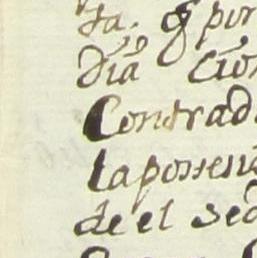 ta. q por
Dia Cion
Contrad
la posses
de el sed